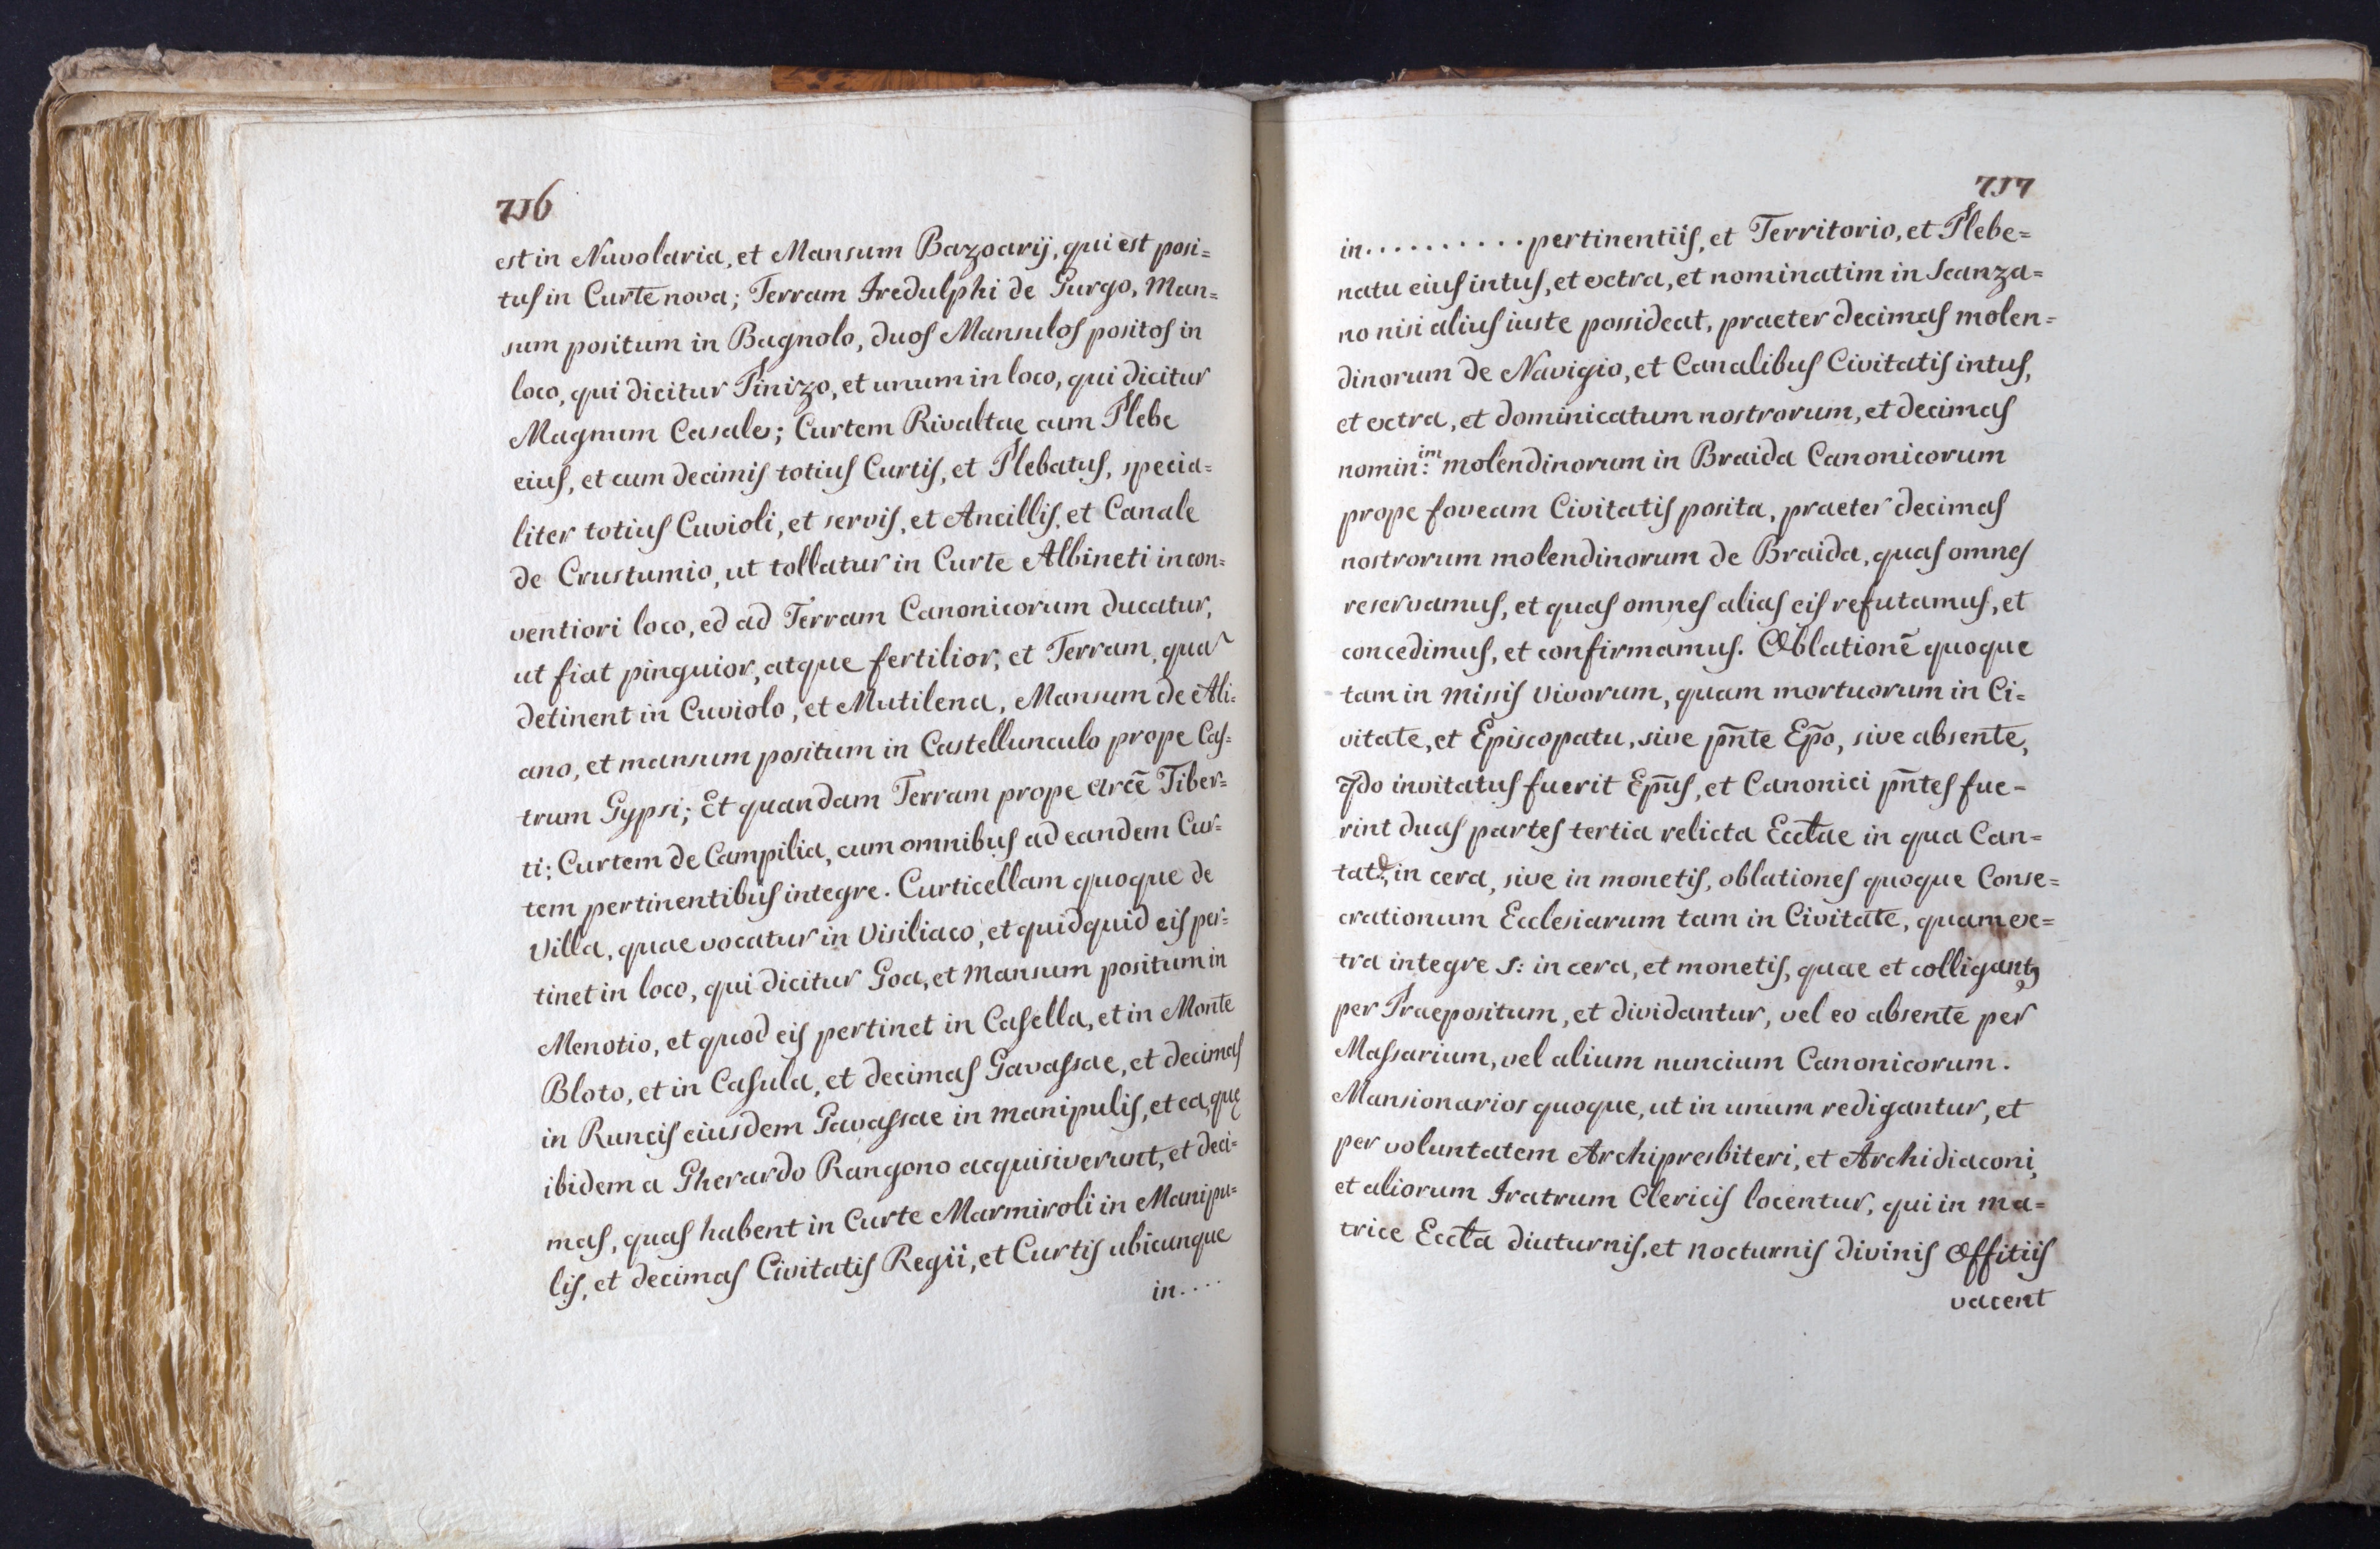 716
est in Nuvolaria, et Mansum Bazoarij, qui est posi=
tus in Curte nova; Terram Fredulphi de Gurgo, Man=
sum positum in Bagnolo, duos Mansulos positos in
loco, qui dicitur Pinizo, et unum in loco, qui dicitur
Magnum Casale; Curtem Rivaltae cum Plebe
eius, et cum decimis totius Curtis, et Plebatus, specia=
liter totius Cuvioli, et servis, et Ancillis, et Canale
de Crustumio, ut tollatur in Curte Albineti in con=
ventiori loco, ed ad Terram Canonicorum ducatur,
ut fiat pinguior, atque fertilior, et Terram, qua
detinent in Cuviolo, et Mutilena, Mansum de Ali=
ano, et mansum positum in Castellunculo prope Cas=
trum Gypsi; Et quandam Terram prope Arcē Tiber=
ti; Curtem de Campilia, cum omnibus ad eandem Cur=
tem pertinentibus integre. Curticellam quoque de
Villa, quae vocatur in Visiliaco, et quidquid eis per=
tinet in loco, qui dicitur Goa, et Mansum positum in
Menotio, et quod eis pertinet in Casella, et in Monte
Bloto, et in Casula, et decimas Gavassae, et decimas
in Runcis eiusdem Gavassae in manipulis, et ea, quę
ibidem a Gherardo Rangono acquisiverunt, et deci=
mas, quas habent in Curte Marmiroli in Manipu=
lis, et decimas Civitatis Regii, et Curtis ubicunque
in....
717
in.......... pertinentiis, et Territorio, et Plebe=
natu eius intus, et extra, et nominatim in Scanza=
no nisi alius iuste possideat, praeter decimas molen=
dinorum de Navigio, et Canalibus Civitatis intus,
et extra, et dominicatum nostrorum, et decimas
nomin:im molendinorum in Braida Canonicorum
prope foveam Civitatis posita, praeter decimas
nostrorum molendinorum de Braida, quas omnes
reservamus, et quas omnes alias eis refutamus, et
concedimus, et confirmamus. Oblationē quoque
tam in missis vivorum, quam mortuorum in Ci=
vitate, et Episcopatu, sive pn̄te Ep̄o, sive absente,
qdo invitatus fuerit Ep̄us, et Canonici pn̄tes fue-
rint duas partes tertia relicta Ecctae in qua Can=
tat.r, in cera, sive in monetis, oblationes quoque Conse=
crationum Ecclesiarum tam in Civitate, quam ex=
tra integre s: in cera, et monetis, quae et colligant,
per Praepositum, et dividantur, vel eo absente per
Massarium, vel alium nuncium Canonicorum.
Mansionarios quoque, ut in unum redigantur, et
per voluntatem Archipresbiteri, et Archidiaconi,
et aliorum Fratrum Clericis locentur, qui in ma=
trice Eccta diuturnis, et nocturnis divinis Offitiis
vacent